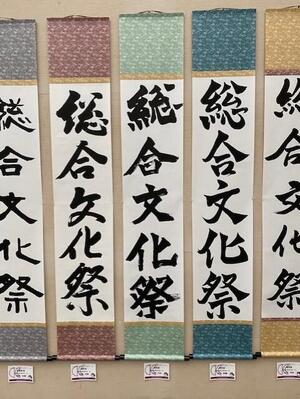 総合文化祭
総合文化祭
総合文化祭
総合文化祭
総合文化祭